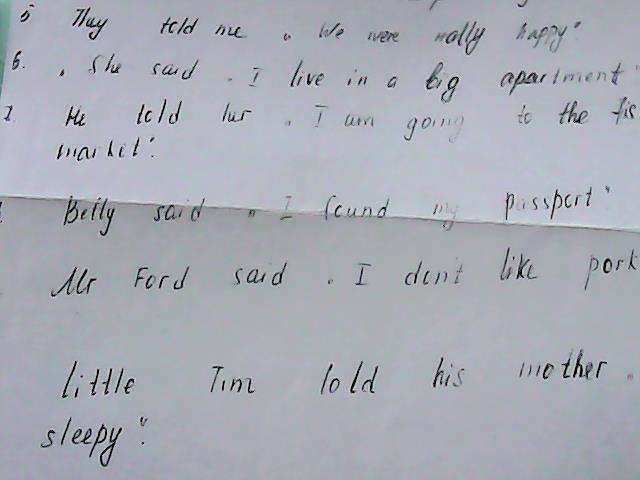 5 They told me „ We were really happy“
6. „ She said „ I live in a big apartment“
7 He told her „ I am going to the fis
market“.
Betty said „ I found my passport“
Mr Ford said „ I don't like pork
little Tim told his mother „
sleepy“.